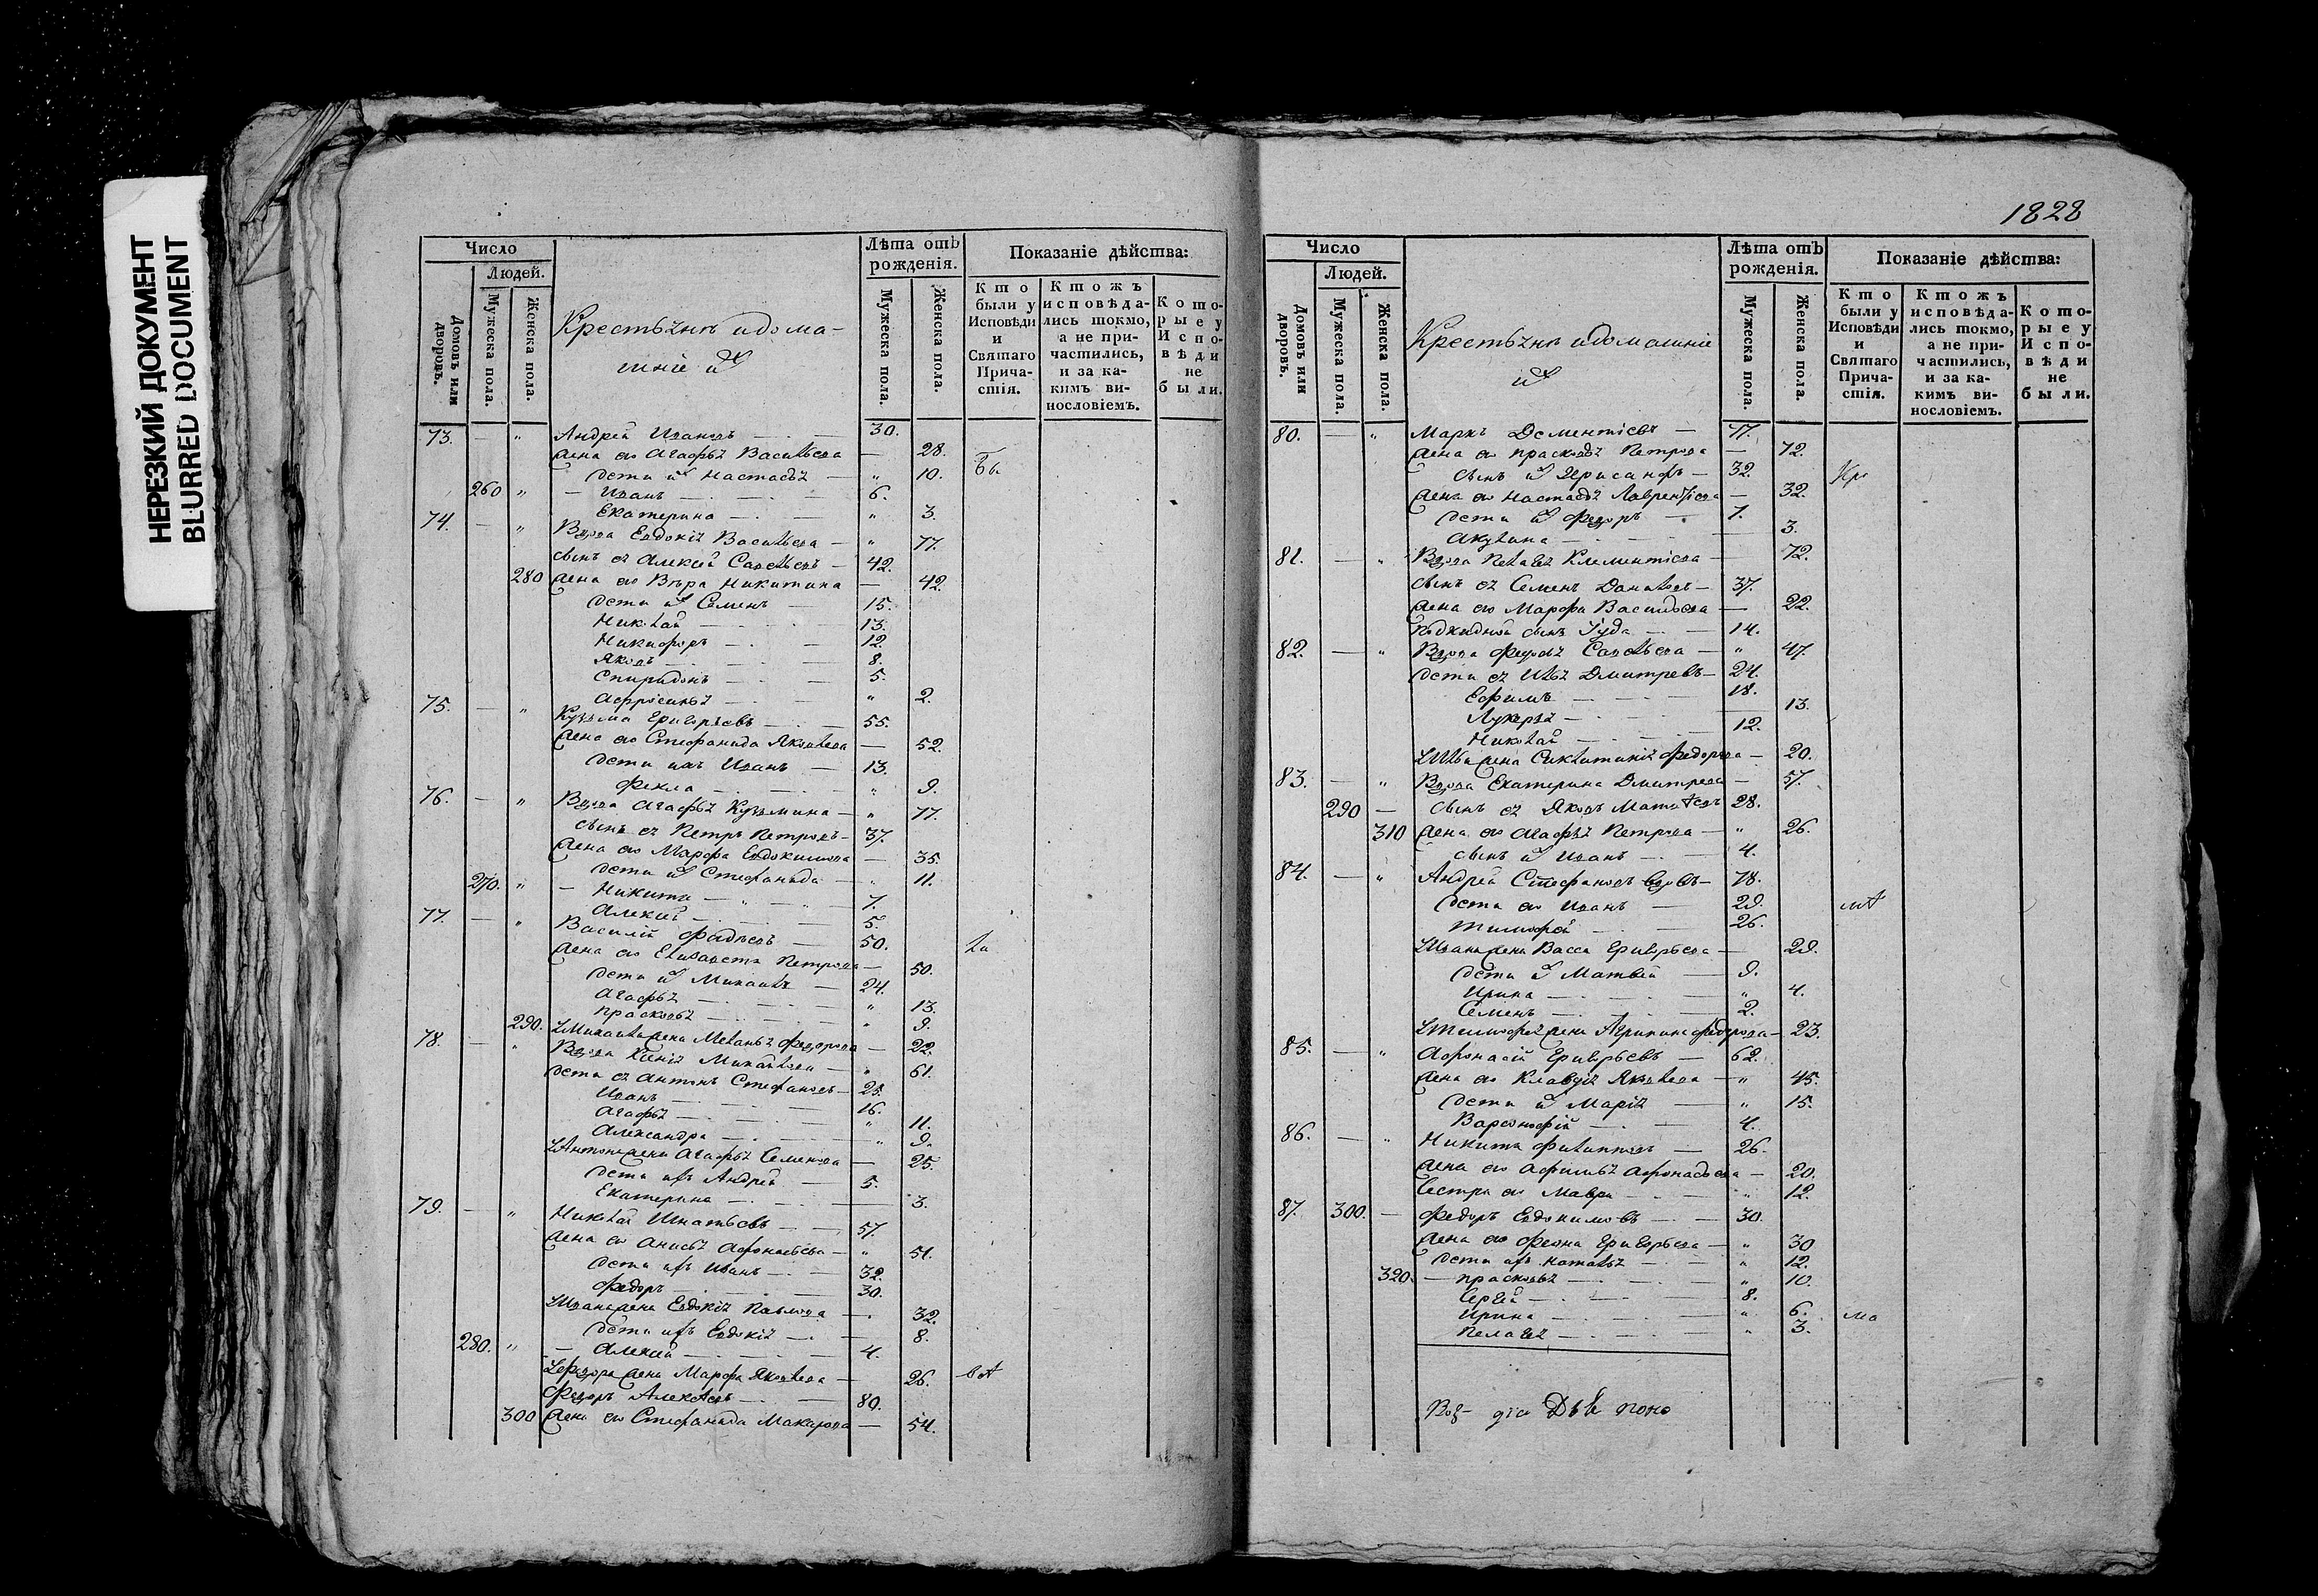 НЕРЕЗКИЙ ДОКУМЕНТ
BLURRED DOCUMENT
Число
Людей.
Домовъ или дворовъ.
Мужеска пола.
Женска пола.
Крестьяне и дома-
шніе их
Лѣта отъ рожденія.
Мужеска пола.
Женска пола.
Показаніе дѣйства:
Кто были у Исповѣди и Святаго Причастія.
Ктожъ исповѣдались токмо, а не причастились, и за какимъ винословіемъ.
Которые у Исповѣди не были.
73. — " Андрей Ивановъ — 30.
жена его Агафья Васильева — 28.
дети их Настасья — " 10. Бы
260 " — Иванъ — 6.
Екатерина — " 3.
74. — " Вдова Евдокия Васильева — " 77.
сынъ ея Алексей Савельевъ — 42.
280 жена его Вѣра Никитина — 42.
дети их Семенъ — 15.
Николай — 13.
Никифоръ — 12.
Яковъ — 8.
Спиридонъ — 5.
Аффросинья — " 2.
75. — " Кузьма Григорьевъ — 55.
жена его Стефанида Яковлева — 52.
дети ихъ Иванъ — 13.
Фекла — " 9.
76. — " Вдова Агафья Кузьмина — " 77.
сынъ ея Петръ Петровъ — 37.
жена его Марфа Евдокимова — 35
дети их Стефанида — " 11.
270. " — Никита — 7.
Алексей — 5.
77. — " Василий Фадѣевъ — 50. ла
жена его Елизавета Петрова — 50.
дети их Михаилъ — 24.
Агафья — " 13.
Прасковья — " 9.
290. Михаила жена Меланья Федорова — 22.
78. — " Вдова Ксения Михайлова — " 61.
дети ея Антонъ Стефановъ — 25.
Иванъ — 16.
Агафья — " 11.
Александра — " 9.
Антона жена Агафья Семенова — 25.
дети ихъ Андрей — 5.
Екатерина — 3.
79. — " Николай Игнатьевъ — 57.
жена его Анисья Афонасьева — " 51.
дети ихъ Иванъ — 32.
Федоръ — 30.
Ивана жена Евдокия Павлова — 32.
дети ихъ Евдокия — 8.
280. " — Алексей — 4.
Федора жена Марфа Яковлева — 26. вѣ
Федоръ Алексѣевъ — 80.
300 жена его Стефанида Макарова — 54.
1828
Число
Людей.
Домовъ или дворовъ.
Мужеска пола.
Женска пола.
Крестьяне и домашніе
их
Лѣта отъ рожденія.
Мужеска пола.
Женска пола.
Показаніе дѣйства:
Кто были у Исповѣди и Святаго Причастія.
Ктожъ исповѣдались токмо, а не причастились, и за какимъ винословіемъ.
Которые у Исповѣди не были.
80. — " Маркъ Дементіевъ — 77.
жена его Прасковья Петрова — 72.
сынъ их — 32. Кре
жена его Настасья Лаврентіева — 32.
дети их Федоръ — 7.
Акулина — 3.
81. — " Вдова Пелагея Клементіева — 72.
сынъ ея Семенъ — 37.
жена его Марфа Васильева — 22.
Подкидной сынъ Іуда — 14.
82. — " Вдова Федосья Савельева — " 47.
дети ея Илья Дмитревъ — 24.
Ефимъ — 18.
Лукерья — 13.
Николай — 12.
Ильи жена Федорова — 20.
83. — " Вдова Екатерина Дмитрева — 57.
290 — сынъ ея Яковъ Матвѣевъ 28.
310 жена его Агафья Петрова — " 26.
сынъ их Иванъ — 4.
84. — " Андрей Стефановъ вдовъ — 78.
дети его Иванъ — 29. мѣ
Тимофей — 26.
Ивана жена Васса Григорьева — 29.
дети их Матвей — 9.
Ирина — " 4.
Семенъ — 2.
Тимофея жена Агрипина Федорова — 23.
85. — " Афонасій Григорьевъ — 62.
жена его Клавдия Яковлева — " 45.
дети их Марія — " 15.
Варфоломей — 4.
86. — " Никита Филипповъ — 26.
жена его Афимья Афонасьева — 20.
Сестра его Мавра — " 12.
87. 300. — Федоръ Евдокимовъ — 30.
жена его Феона Григорьева — " 30
дети ихъ Наталья — " 12.
320. — Прасковья — " 10.
Сергей — 8.
Ирина — " 6. ма
Пелагея — " 3.